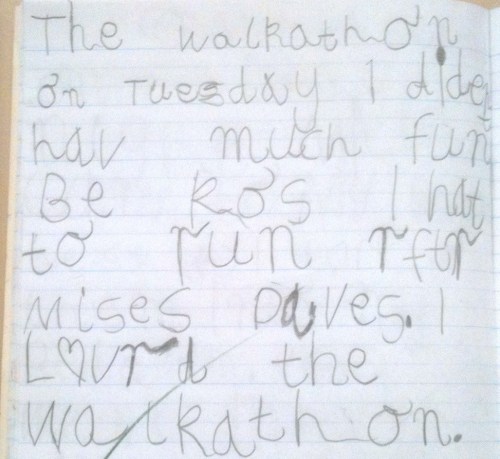 The walkathon
on Tuesday I diden
hav much fun
Be Kos I hat
to run rftr
mises Daves. I
Lovrd the
walkathon.